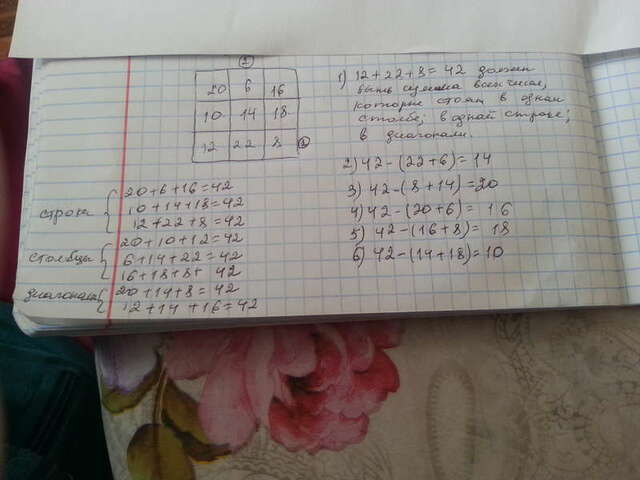 ①
20 6 16
10 14 18
12 22 8 ①
строки
20+6+16=42
10+14+18=42
12+22+8=42
столбцы
20+10+12=42
6+14+22=42
16+18+8+ 42
диагонали
20+14+8=42
12+14+16=42
1) 12+22+8=42 должен
быть сумма всех чисел,
которые стоят в одном
столбе; в одной строке;
в диагонали.
2) 42-(22+6)=14
3) 42-(8+14)=20
4) 42-(20+6)= 16
5) 42-(16+8)= 18
6) 42-(14+18)=10